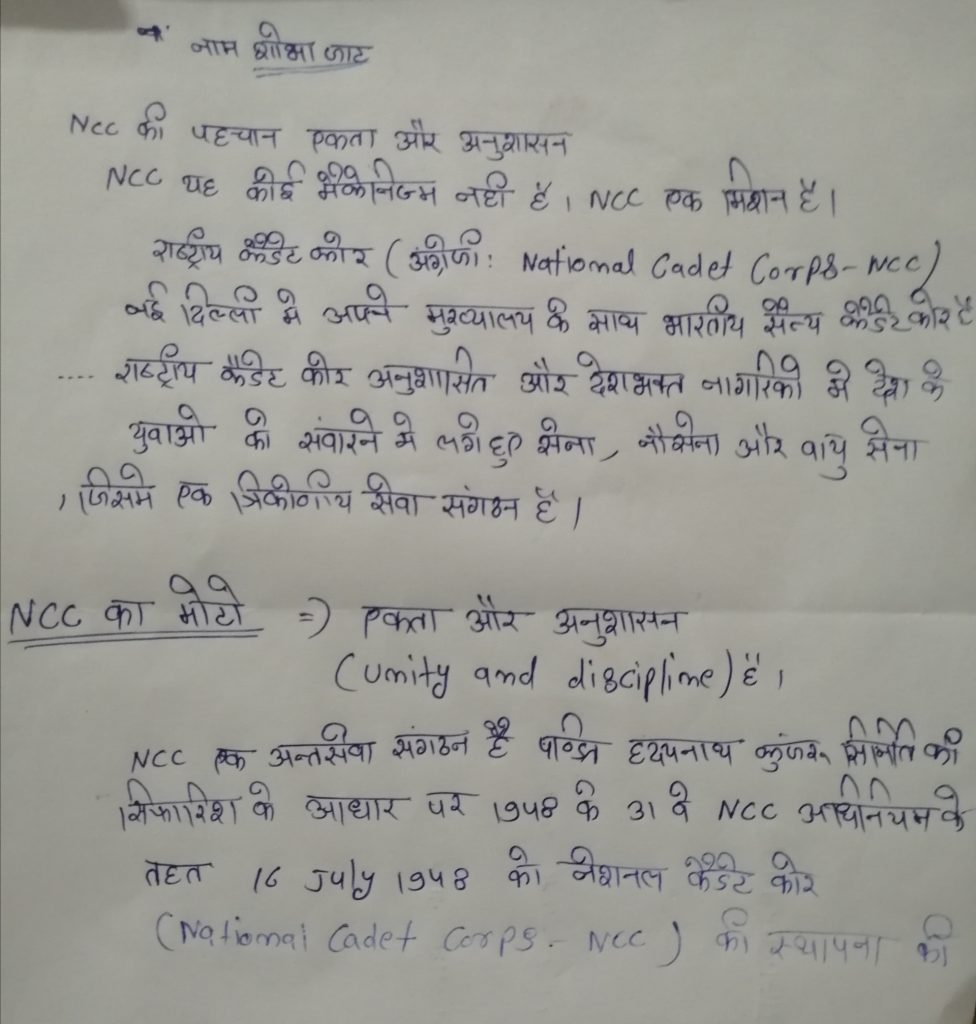 नाम शोभा जाट
NCC की पहचान एकता और अनुशासन
NCC यह कोई मैकेनिज्म नही है। NCC एक मिशन है।
राष्ट्रीय कैडेट कोर (अंग्रेजी: National Cadet Corps-NCC)
नई दिल्ली मे अपने मुख्यालय के साथ भारतीय सैन्य कैडेट कोर है
.... राष्ट्रीय कैडेट कोर अनुशासित और देशभक्त नागरिको मे देश के
युवाओ को संवारने मे लगे हुए सेना, नौसेना और वायु सेना
, जिसमे एक त्रिकोणीय सेवा संगठन है।
NCC का मोटो => एकता और अनुशासन
(unity and discipline) है।
NCC एक अन्तसेवा संगठन है हदयनाथ कुंजरू समिति की
सिफारिश के आधार पर 1948 के 31 वे NCC अधिनियम के
तहत 16 July 1948 को नेशनल कैडेट कोर
(National Cadet Corps - NCC) की स्थापना की